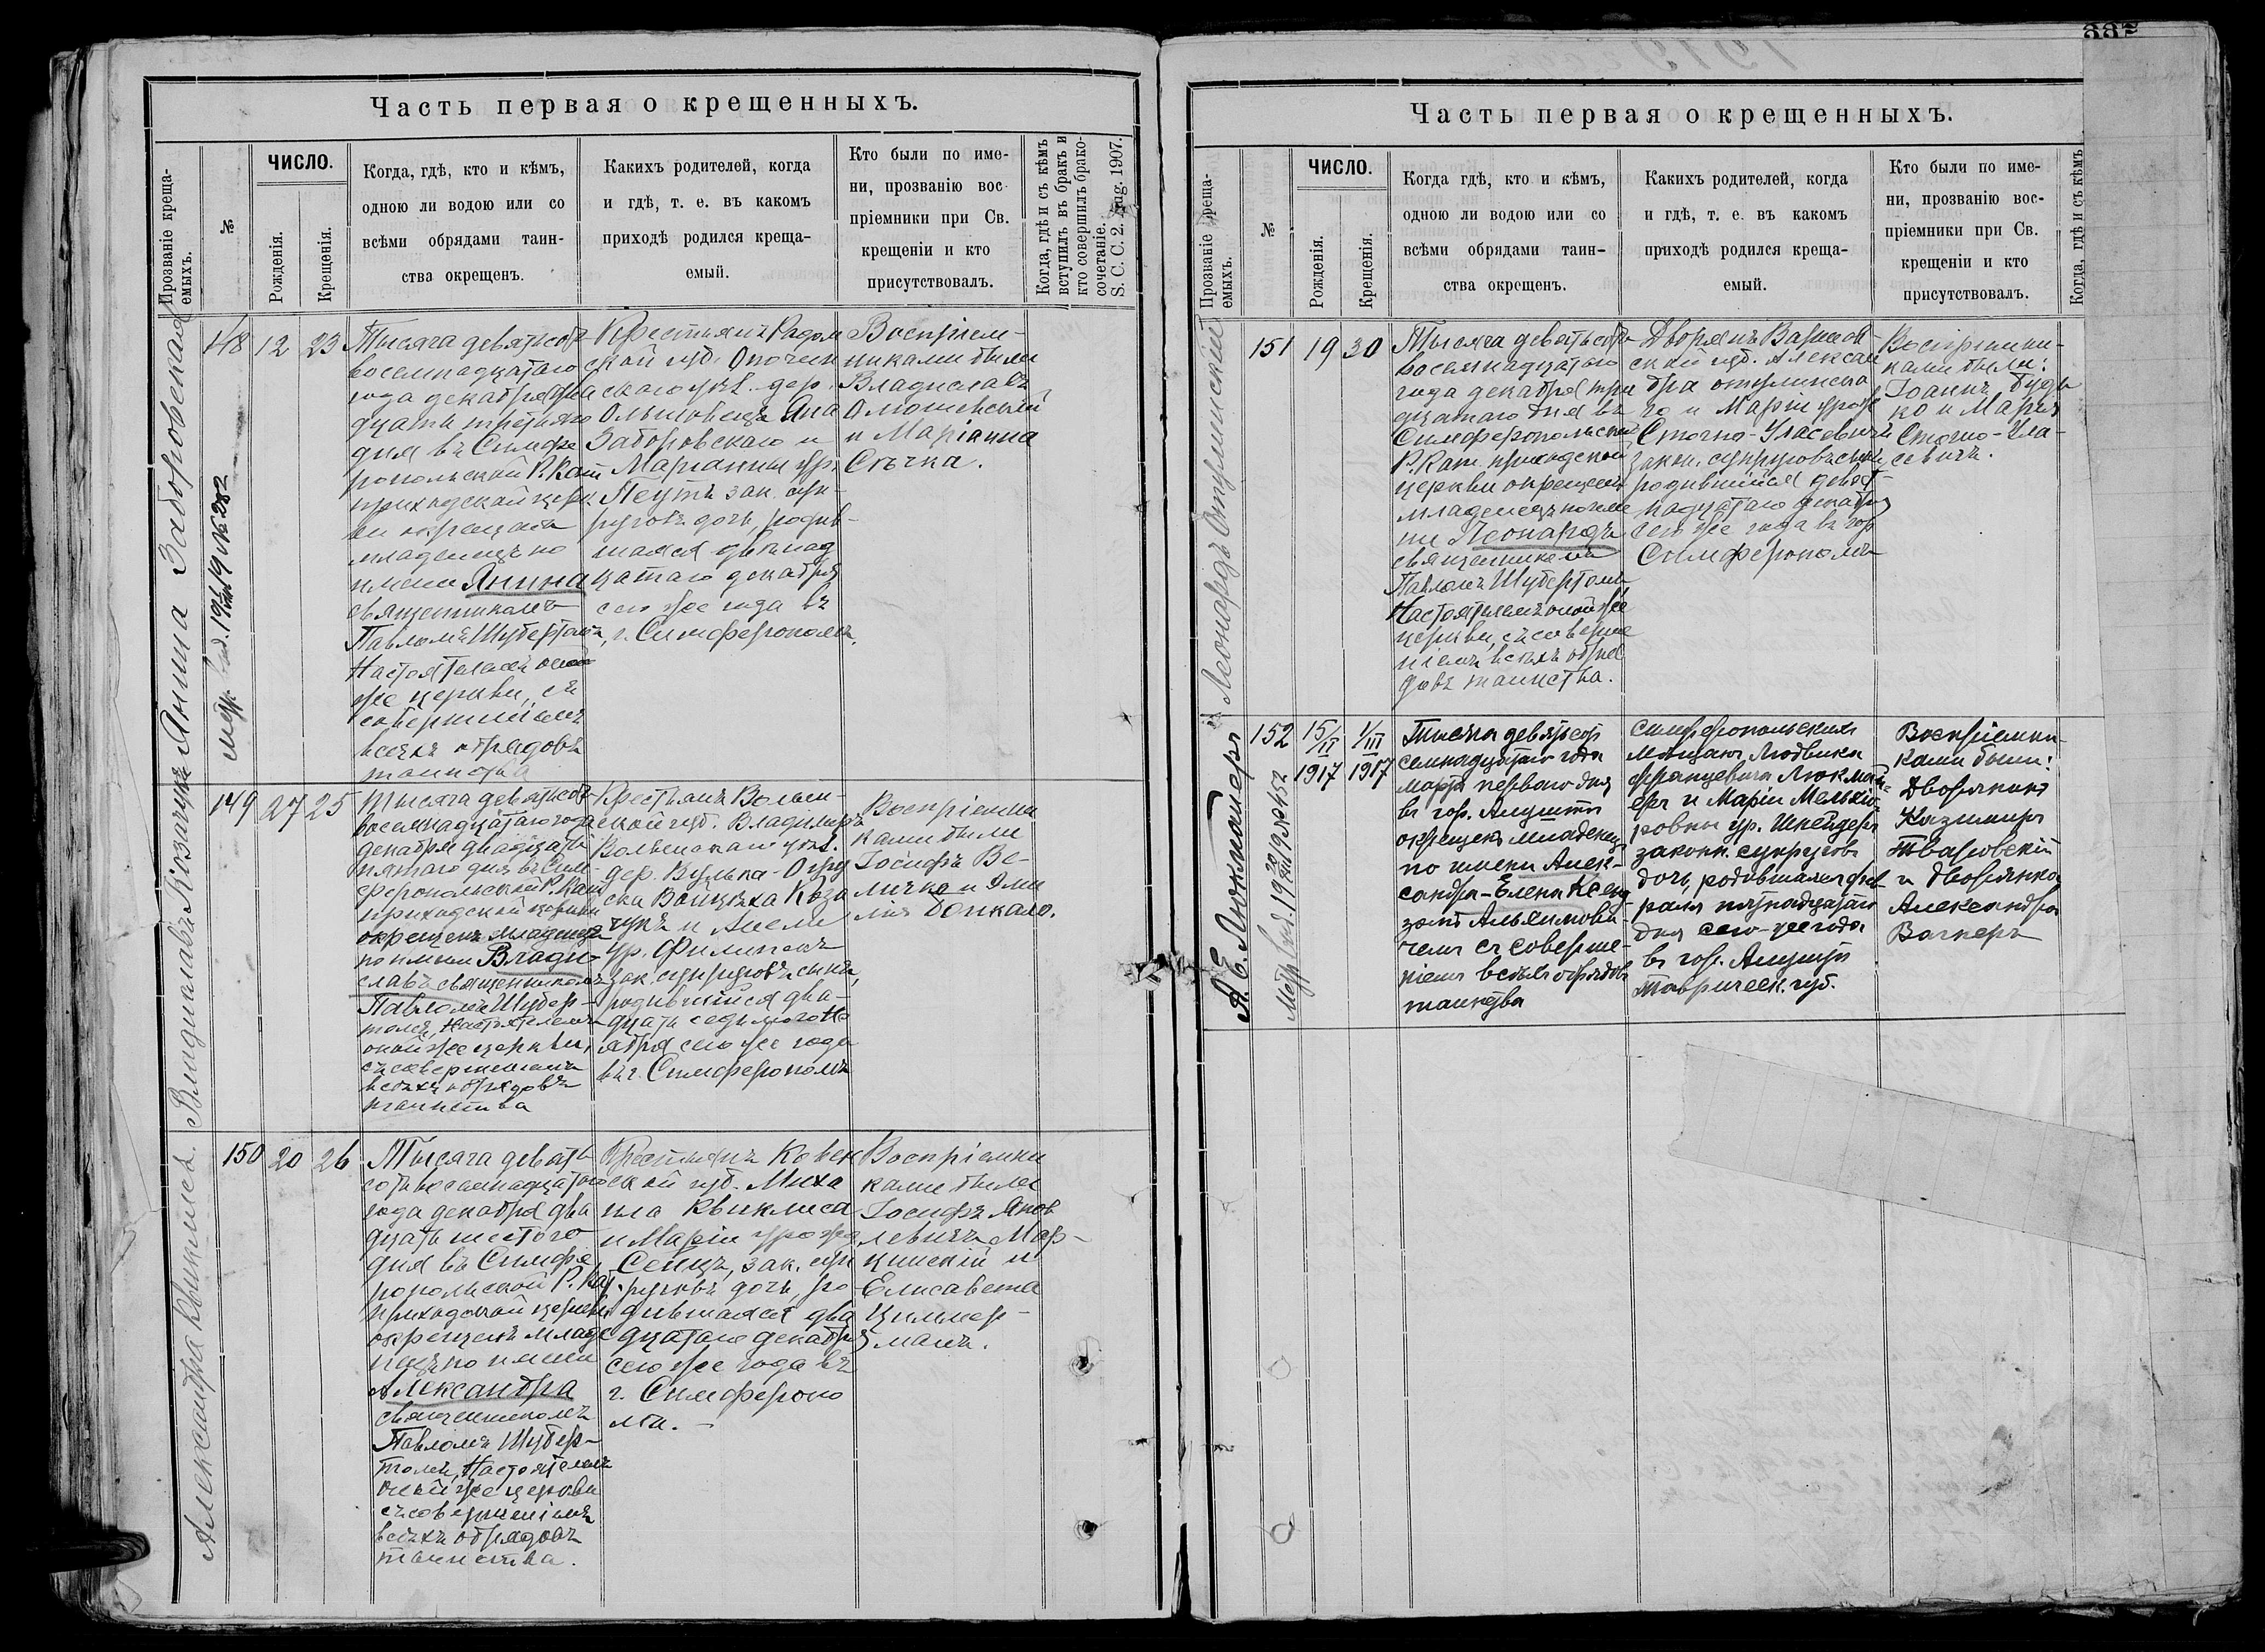 Часть первая о крещенныхъ.
Прозваніе креща-
емыхъ.
№
ЧИСЛО.
Рожденія.
Крещенія.
Когда, гдѣ, кто и кѣмъ,
одною ли водою или со
всѣми обрядами таин-
ства окрещенъ.
Какихъ родителей, когда
и гдѣ, т. е. въ какомъ
приходѣ родился креща-
емый.
Кто были по име-
ни, прозванію вос-
пріемники при Св.
крещеніи и кто
присутствовалъ.
Когда, гдѣ и съ кѣмъ
вступилъ въ бракъ и
кто совершилъ брако-
сочетаніе.
S. C. C. 2. Aug. 1907.
Янина Забороовская
148
12
23
Тысяча девятьсотъ
восемнадцатаго
года декабря два
дцать третьяго
дня въ Симфе
ропольской Р. Кат
приходской церк
ви окрещенъ
младенецъ по
имени Янина
священникомъ
Павломъ Шубертомъ,
Настоятелемъ оной
же церкви, съ
совершеніемъ
всѣхъ обрядовъ
таинства
Крестьянъ Радом
ской губ. Опочин
скаго уѣз. дер.
Ольшовецъ Яна
Заборовскаго и
Маріанны ур.
зак. суп-
руговъ дочь, родив-
шаяся двѣнад
цатаго декабря
сего же года въ
г. Симферополѣ.
Воспріем-
никами были
Владиславъ
и Маріанна
Сѣчка.
Владиславъ Козачукъ
149
27
25
Тысяча девятьсотъ
восемнадцатаго года
декабря двадцать
пятаго дня въ Сим-
феропольской Р. Кат
приходской церкви
окрещенъ младенецъ
по имени Влади-
славъ священникомъ
Павломъ Шубер-
томъ, Настоятелемъ
оной же церкви,
съ совершеніемъ
всѣхъ обрядовъ
таинства
Крестьянъ Волын-
ской губ. Владиміръ
Волынскаго уѣз.
дер. Вулька-
Войцѣха Коза
чукъ и Анели
ур. Филипекъ
зак. супруговъ сынъ,
родившійся два-
дцать седьмого Но
ября сего же года
въ г. Симферополѣ
Воспріемни
ками были
Іосифъ Ве-
личко и Эми
лія Донкало.
Александра Квиклисъ.
150
20
26
Тысяча девять
сотъ восемнадцатаго
года декабря два
дцать шестого
дня въ Симфе
ропольской Р. Кат
приходской церкви
окрещенъ младе
нецъ по имени
Александра
священникомъ
Павломъ Шубер-
томъ, Настоятелемъ
оной же церкви
съ совершеніемъ
всѣхъ обрядовъ
таинства.
Крестьянъ Ковен
ской губ. Миха
ила Квиклиса
и Маріи урожд.
зак. суп
руговъ дочь, ро-
дившаяся два
дцатаго декабря
сего же года въ
г. Симферопо
лѣ. —
Воспріемни
ками были
Іосифъ Яков
левичъ Мар-
цинскій и
Елисавета
Циммер-
манъ.
Часть первая о крещенныхъ.
Прозваніе креща-
емыхъ.
№
ЧИСЛО.
Рожденія.
Крещенія.
Когда гдѣ, кто и кѣмъ,
одною ли водою или со
всѣми обрядами таин-
ства окрещенъ.
Какихъ родителей, когда
и гдѣ, т. е. въ какомъ
приходѣ родился креща-
емый.
Кто были по име-
ни, прозванію вос-
пріемники при Св.
крещеніи и кто
присутствовалъ.
Когда, гдѣ и съ кѣмъ
Леонардъ Отулинскій
151
19
30
Тысяча девятьсотъ
восемнадцатаго
года декабря три
дцатаго дня въ
Симферопольской
Р. Кат. приходской
церкви окрещенъ
младенецъ по име
ни Леонардъ
священникомъ
Павломъ Шубертомъ
Настоятелемъ оной же
церкви, съ соверше
ніемъ всѣхъ обря
довъ таинства.
Дворянъ Варшав-
ской губ. Алексан
дра Отулинска
го и Маріи урож
Стагно-Уласевичъ
закон. супруговъ сынъ,
родившійся девят-
надцатаго декабря
сего же года въ гор
Симферополѣ
Воспріемни-
ками были:
Іоаннъ Будь
ко и Марія
Стагно-Ула-
севичъ.
А. Е. Люкмайеръ
152
15/II
1917
1/III
1917
Тысяча девятьсотъ
семнадцатаго года
марта перваго дня
въ гор. Алуштѣ
окрещенъ младенецъ
по имени Алек-
сандра-Елена Ксенд
зомъ
чемъ съ соверше-
ніемъ всѣхъ обрядовъ
таинства
Симферопольскихъ
мѣщанъ Людвика
Францевича Люкмай-
еръ и Маріи Мельхіо-
ровны ур. Шнейдеръ
законн. супруговъ
дочь, родившаяся фев-
раля пятнадцатаго
дня сего-же года
въ гор. Алуштѣ
Таврическ. губ.
Воспріемни-
ками были:
Дворянинъ
Казиміръ
Тваровскій
и дворянка
Александра
Вагнеръ